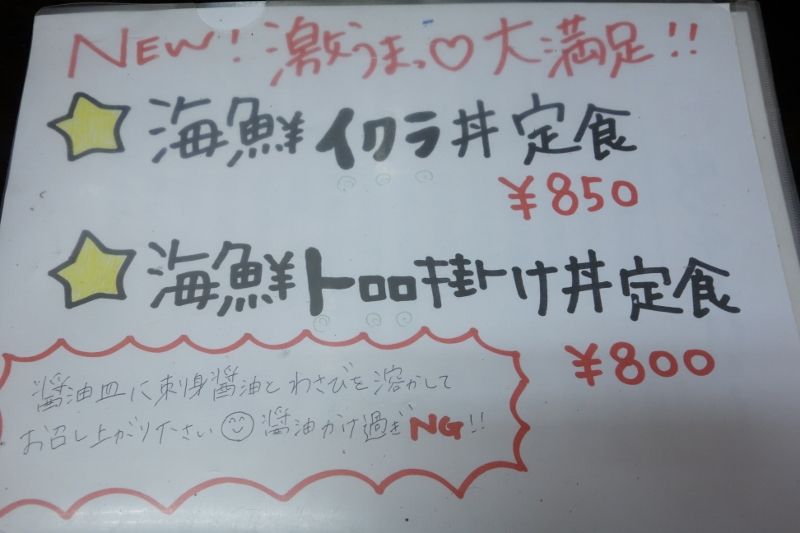 NEW! 激うまっ♡大満足!!
☆海鮮イクラ丼定食
¥850
☆海鮮トロロ掛け丼定食
¥800
醤油皿に刺身醤油とわさびを溶かして
お召し上がり下さい☺醤油かけ過ぎNG!!